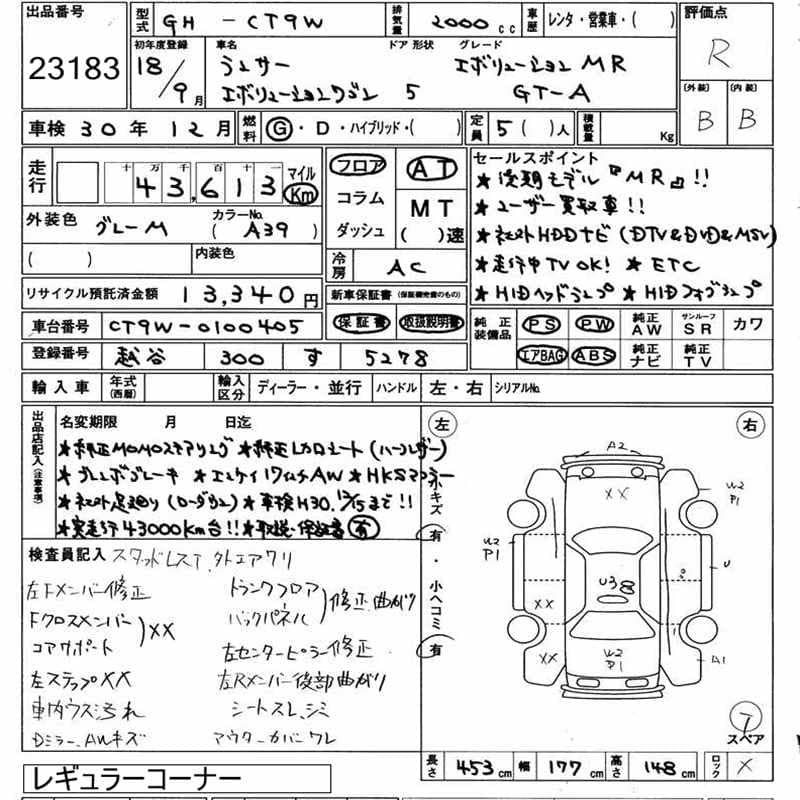 出品番号
23183
型式 GH - CT9W
排気量 2000 cc
車歴 レンタ・営業車・( )
評価点
R
初年度登録
18/9月
車名
ランサー
エボリューションワゴン
ドア 形状
5
グレード
エボリューション MR
GT-A
(外装) B
(内装) B
車検 30年 12月
燃料 G・D・ハイブリッド・( )
定員 5( )人
積載量 Kg
走行
十 万 千 百 十 一
43,613
マイル
Km
フロア
コラム
ダッシュ
AT
MT
( )速
セールスポイント
★後期モデル『MR』!!
★ユーザー買取車!!
★社外HDDナビ(DTV&DVD&MSV)
★走行中TV OK! ★ETC
★HIDヘッドランプ ★HIDフォグランプ
外装色
グレーM
カラーNo.
( A39 )
( )
内装色
冷房 AC
リサイクル預託済金額 13,340円
新車保証書 (保証継続書のもの)
保証書 取扱説明書
車台番号 CT9W-0100405
登録番号 越谷 300 す 5278
純正装備品
PS PW 純正AW サンルーフSR カワ
エアBAG ABS 純正ナビ 純正TV
輸入車 年式(西暦) 輸入区分 ディーラー・並行 ハンドル 左・右 シリアルNo.
出品店記入(注意事項)
名変期限 月 日迄
★純正MOMOステアリング ★純正レカロシート(ハーフレザー)
★ブレンボブレーキ ★エンケイ17インチAW ★HKSマフラー
★社外足廻り(ローダウン) ★車検H30.12/15まで!!
★実走行43000Km台!! ★取説・保証書有
検査員記入 スタッドレスT.外エアクリ
左Fメンバー修正
Fクロスメンバー
コアサポート
XX
左ステップXX
車内ウス汚れ
Dミラー.AWキズ
トランクフロア
バックパネル
修正曲がり
左センターピラー修正
左Rメンバー後部曲がり
シートスレ、シミ
アウターカバーワレ
左
右
小キズ
有
・
小ヘコミ
有
A2
XX
W2
P1
U2
P1
U3
U
XX
XX
W2
P1
A1
スペア
長さ 453cm 幅 177cm 高さ 148cm ロック ×
レギュラーコーナー